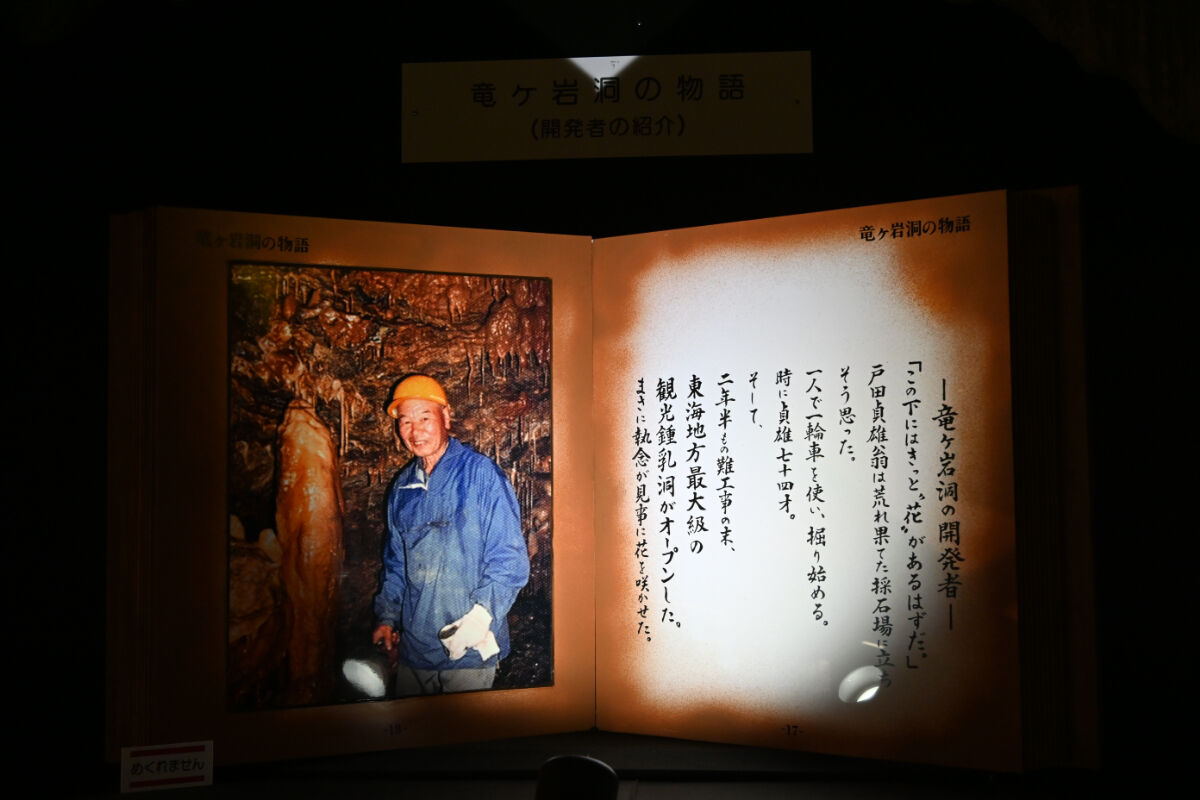 竜ヶ岩洞の物語
(開発者の紹介)
竜ヶ岩洞の物語
竜ヶ岩洞の物語
―竜ヶ岩洞の開発者―
「この下にはきっと〝花〟があるはずだ。」
戸田貞雄翁は荒れ果てた採石場に立ち
そう思った。
一人で一輪車を使い、掘り始める。
時に貞雄七十四才。
そして、
二年半もの難工事の末、
東海地方最大級の
観光鍾乳洞がオープンした。
まさに執念が見事に花を咲かせた。
-18-
-17-
めくれません